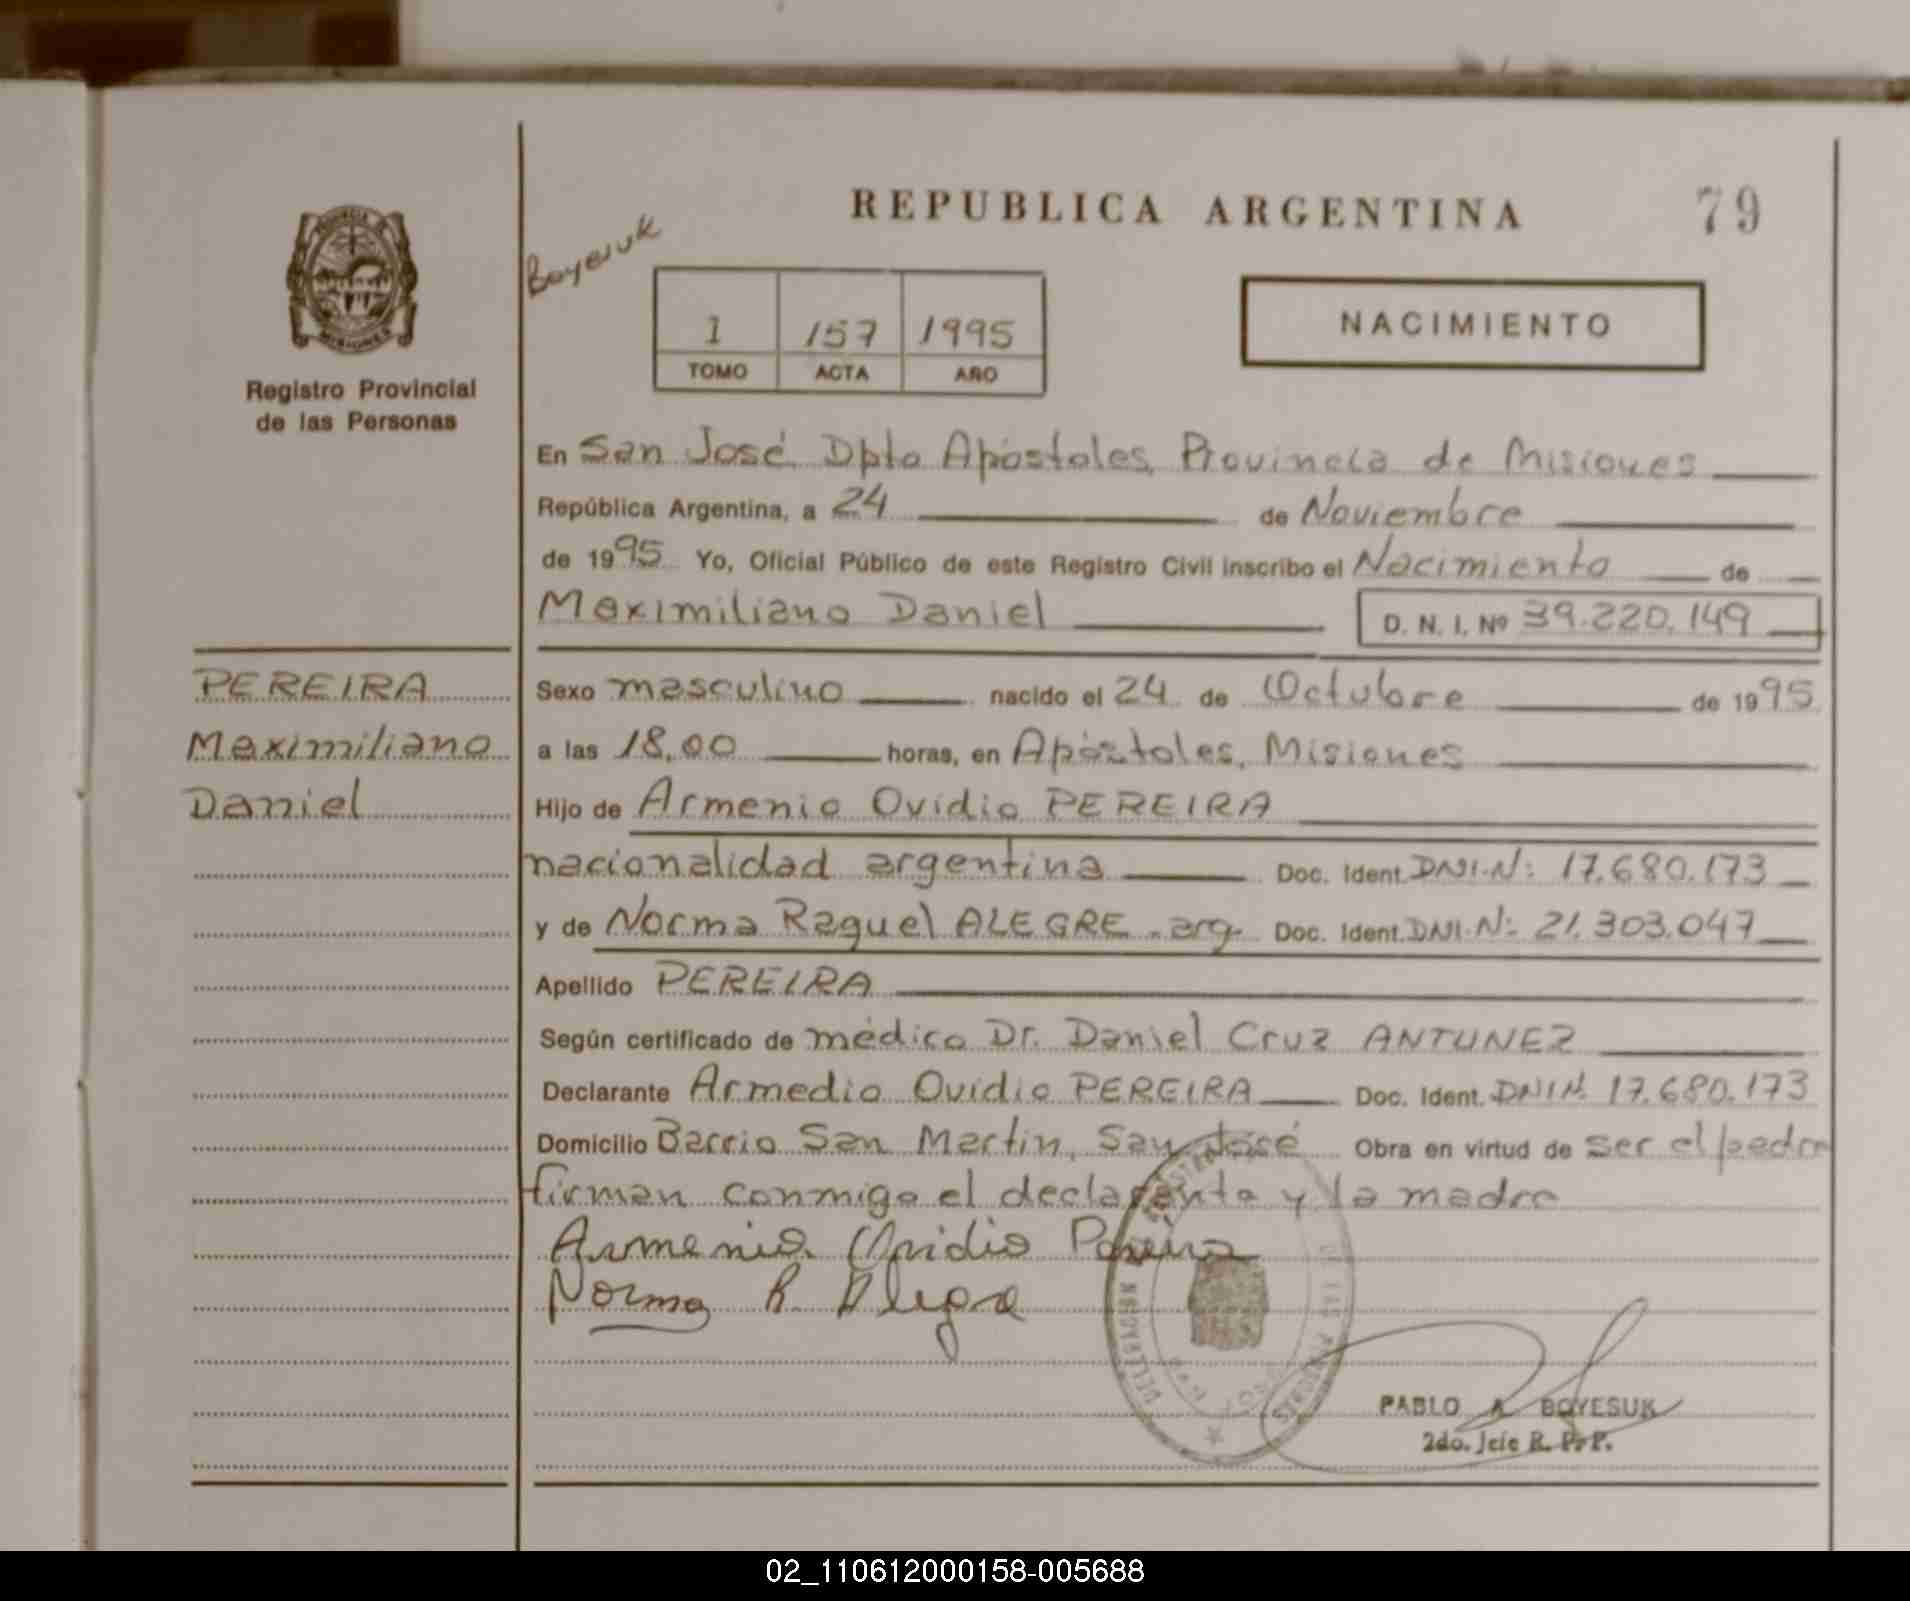 REPUBLICA ARGENTINA
79
Boyesuk
1 157 1995
TOMO ACTA AÑO
NACIMIENTO
MISIONES
Registro Provincial
de las Personas
En San José, Dpto Apóstoles, Provincia de Misiones
República Argentina, a 24 de Noviembre
de 1995 Yo, Oficial Público de este Registro Civil inscribo el Nacimiento de
Maximiliano Daniel D. N. I. Nº 39.220.149
PEREIRA
Maximiliano
Daniel
Sexo masculino nacido el 24 de Octubre de 1995
a las 18,00 horas, en Apóstoles, Misiones
Hijo de Armenio Ovidio PEREIRA
nacionalidad argentina Doc. Ident. DNI.Nº: 17.680.173
y de Norma Raquel ALEGRE - arg. Doc. Ident. DNI.Nº: 21.303.047
Apellido PEREIRA
Según certificado de médico Dr. Daniel Cruz ANTUNEZ
Declarante Armedio Ovidio PEREIRA Doc. Ident. DNI Nº 17.680.173
Domicilio Barrio San Martin, San José Obra en virtud de ser el padre
firman conmigo el declarante y la madre
Armenio Ovidio Pereira
Norma R. Alegre
DE LAS PERSONAS
PABLO A. BOYESUK
2do. Jefe R. P. P.
02_110612000158-005688